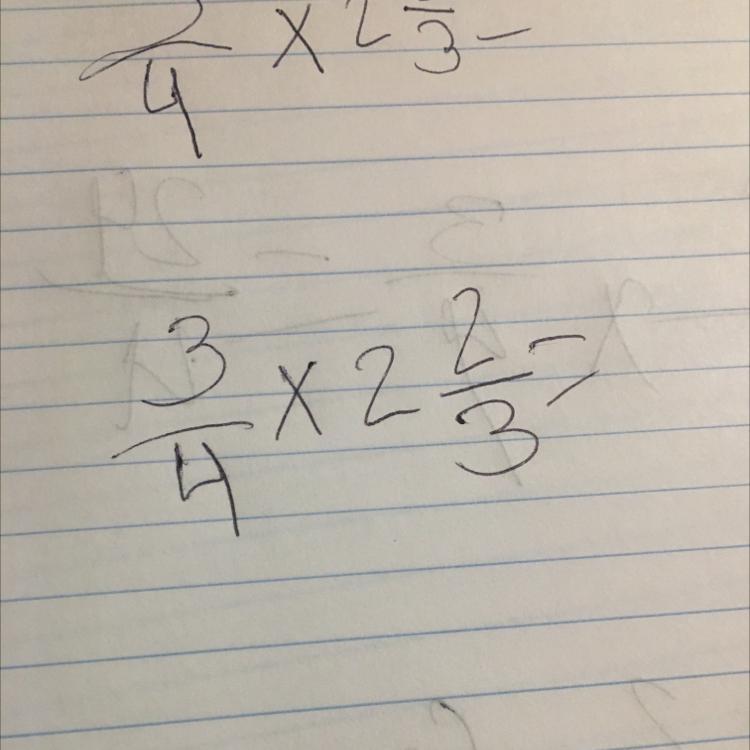 4 × 2 /3 -
3/4 × 2 2/3 =